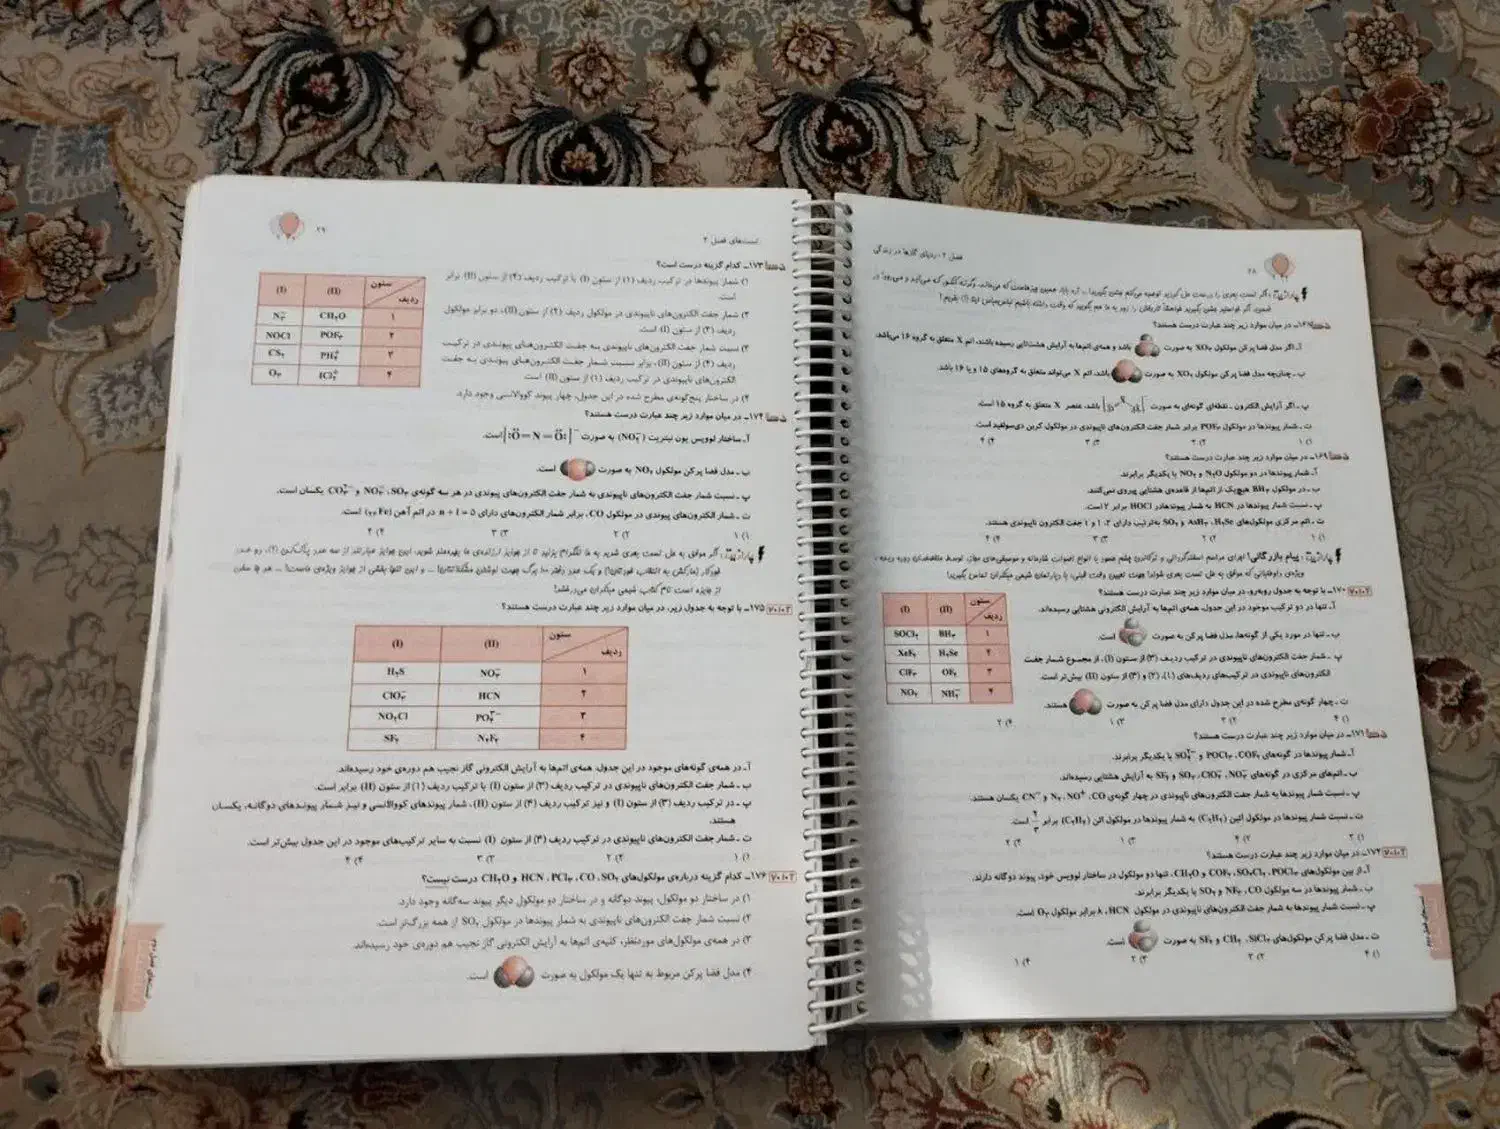 ۲۸
فصل ۲ - ردپای گازها در زندگی
در میان موارد زیر چند عبارت درست هستند؟
آ- اگر مدل فضا پرکن مولکول XO₂ به صورت باشد و همه‌ی اتم‌ها به آرایش هشت‌تایی رسیده باشند، اتم X متعلق به گروه ۱۶ می‌باشد.
ب- چنان‌چه مدل فضا پرکن مولکول XO₂ به صورت باشد، اتم X می‌تواند متعلق به گروه‌های ۱۵ و یا ۱۶ باشد.
پ- اگر آرایش الکترون - نقطه‌ای گونه‌ای به صورت باشد، عنصر X متعلق به گروه ۱۵ است.
ت- شمار پیوندها در مولکول POF₃ برابر شمار جفت الکترون‌های ناپیوندی در مولکول کربن دی‌سولفید است.
۱) ۱ ۲) ۲ ۳) ۳ ۴) ۴
۱۶۹- در میان موارد زیر چند عبارت درست هستند؟
آ- شمار پیوندها در دو مولکول N₂O و NO₂ با یکدیگر برابرند.
ب- در مولکول BH₃ هیچ‌یک از اتم‌ها از قاعده‌ی هشتایی پیروی نمی‌کنند.
پ- نسبت شمار پیوندها در HCN به شمار پیوندها در HOCl برابر ۲ است.
ت- اتم مرکزی مولکول‌های H₂Se، AsH₃ و SO₂ به‌ترتیب دارای ۲، ۱ و ۱ جفت الکترون ناپیوندی هستند.
۱) ۱ ۲) ۲ ۳) ۳ ۴) ۴
۱۷۰- با توجه به جدول روبه‌رو، در میان موارد زیر چند عبارت درست هستند؟
ستون ردیف (II) (I)
۱ BH₃ SOCl₂
۲ H₂Se XeF₂
۳ OF₂ ClF₃
۴ NH₂⁻ NO₂
آ- تنها در دو ترکیب موجود در این جدول، همه‌ی اتم‌ها به آرایش الکترونی هشتایی رسیده‌اند.
ب- تنها در مورد یکی از گونه‌ها، مدل فضا پرکن به صورت است.
پ- شمار جفت الکترون‌های ناپیوندی در ترکیب ردیف (۳) از ستون (I)، از مجموع شمار جفت
الکترون‌های ناپیوندی در ترکیب‌های ردیف‌های (۱)، (۲) و (۳) از ستون (II) بیش‌تر است.
ت- چهار گونه‌ی مطرح شده در این جدول دارای مدل فضا پرکن به صورت هستند.
۱) ۴ ۲) ۳ ۳) ۱ ۴) ۲
۱۷۱- در میان موارد زیر چند عبارت درست هستند؟
آ- شمار پیوندها در گونه‌های COF₂، POCl₃ و SO₄²⁻ با یکدیگر برابرند.
پ- نسبت شمار پیوندها به شمار جفت الکترون‌های ناپیوندی در چهار گونه‌ی CO، NO⁺، N₂ و CN⁻ یکسان هستند.
۱) ۲ ۲) ۴ ۳) ۱ ۴) ۳
۱۷۲- در میان موارد زیر چند عبارت درست هستند؟
آ- از بین مولکول‌های POCl₃، SO₂Cl₂، COF₂ و CH₂O، تنها دو مولکول در ساختار لوویس خود، پیوند دوگانه دارند.
ب- شمار پیوندها در سه مولکول CO، NF₃ و SO₂ با یکدیگر برابرند.
پ- نسبت شمار پیوندها به شمار جفت الکترون‌های ناپیوندی در مولکول HCN، ۸ برابر مولکول O₃ است.
ت- مدل فضا پرکن مولکول‌های SiCl₄، CH₄ و SF₄ به صورت است.
۱) ۴ ۲) ۳ ۳) ۲ ۴) ۱
تست‌های فصل ۲
۲۹
۱۷۳- کدام گزینه درست است؟
۱) شمار پیوندها در ترکیب ردیف (۱) از ستون (I) با ترکیب ردیف (۴) از ستون (II) برابر
است.
۲) شمار جفت الکترون‌های ناپیوندی در مولکول ردیف (۲) از ستون (II)، دو برابر مولکول
ردیف (۳) از ستون (I) است.
۳) نسبت شمار جفت الکترون‌های ناپیوندی به جفت الکترون‌های پیوندی در ترکیب
ردیف (۴) از ستون (II)، برابر نسبت شمار جفت الکترون‌های پیوندی به جفت
الکترون‌های ناپیوندی در ترکیب ردیف (۱) از ستون (II) است
۴) در ساختار پنج گونه‌ی مطرح شده در این جدول، چهار پیوند کووالانسی وجود دارد.
ستون ردیف (II) (I)
۱ CH₂O N₃⁻
۲ POF₃ NOCl
۳ PH₄⁺ CS₂
۴ ICl₄⁺ O₃
۱۷۴- در میان موارد زیر چند عبارت درست هستند؟
آ- ساختار لوویس یون نیتریت (NO₂⁻) به صورت [:Ö=N=Ö:]⁻ است.
ب- مدل فضا پرکن مولکول NO₂ به صورت است.
پ- نسبت شمار جفت الکترون‌های ناپیوندی به شمار جفت الکترون‌های پیوندی در هر سه گونه‌ی SO₃، NO₃⁻ و CO₃²⁻ یکسان است.
ت- شمار الکترون‌های پیوندی در مولکول CO، برابر شمار الکترون‌های دارای n + l = ۵ در اتم آهن (₂₆Fe) است.
۱) ۱ ۲) ۲ ۳) ۳ ۴) ۴
۱۷۵- با توجه به جدول زیر، در میان موارد زیر چند عبارت درست هستند؟
ستون ردیف (II) (I)
۱ NO₃⁻ H₂S
۲ HCN ClO₃⁻
۳ PO₄³⁻ NO₂Cl
۴ N₂F₂ SF₂
آ- در همه‌ی گونه‌های موجود در این جدول، همه‌ی اتم‌ها به آرایش الکترونی گاز نجیب هم دوره‌ی خود رسیده‌اند.
ب- شمار جفت الکترون‌های ناپیوندی در ترکیب ردیف (۳) از ستون (I) با ترکیب ردیف (۱) از ستون (II) برابر است.
پ- در ترکیب ردیف (۳) از ستون (I) و نیز ترکیب ردیف (۴) از ستون (II)، شمار پیوندهای کووالانسی و نیز شمار پیوندهای دوگانه، یکسان
هستند.
ت- شمار جفت الکترون‌های ناپیوندی در ترکیب ردیف (۴) از ستون (I) نسبت به سایر ترکیب‌های موجود در این جدول بیش‌تر است.
۱) ۱ ۲) ۲ ۳) ۳ ۴) ۴
۱۷۶- کدام گزینه درباره‌ی مولکول‌های SO₂، CO، PCl₃، HCN و CH₂O درست نیست؟
۱) در ساختار دو مولکول، پیوند دوگانه و در ساختار دو مولکول دیگر پیوند سه‌گانه وجود دارد.
۲) نسبت شمار جفت الکترون‌های ناپیوندی به شمار پیوندها در مولکول SO₂ از همه بزرگ‌تر است.
۳) در همه‌ی مولکول‌های موردنظر، کلیه‌ی اتم‌ها به آرایش الکترونی گاز نجیب هم دوره‌ی خود رسیده‌اند.
۴) مدل فضا پرکن مربوط به تنها یک مولکول به صورت است.